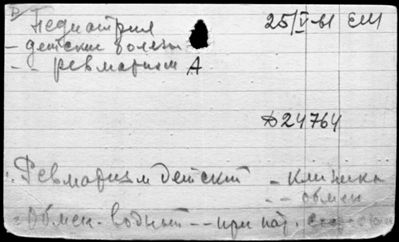 Педиатрия 25/V-61 ЕШ
- детские болезни
- - ревматизм А
Д24764
Ревматизм детский - клиника
- - обмен
Обмен водный - - при пат.